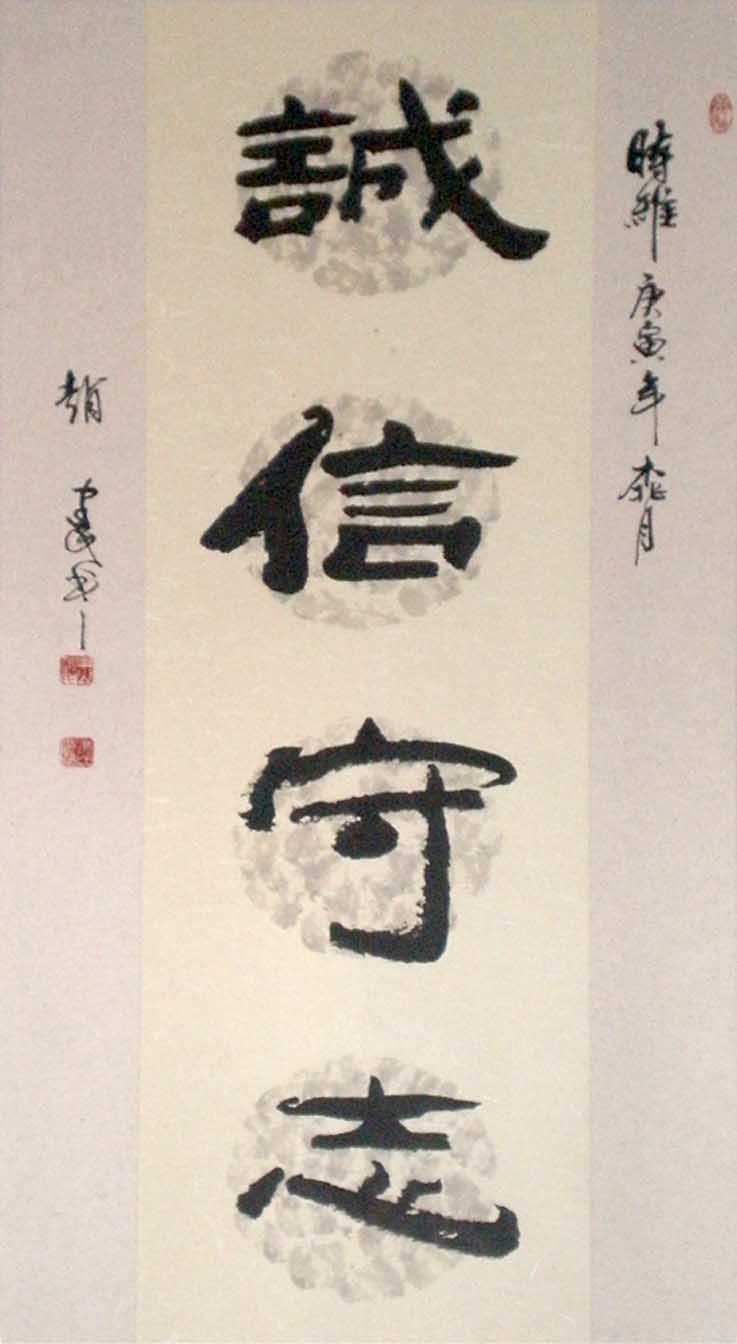 時維庚寅年桃月
誠信守志
趙